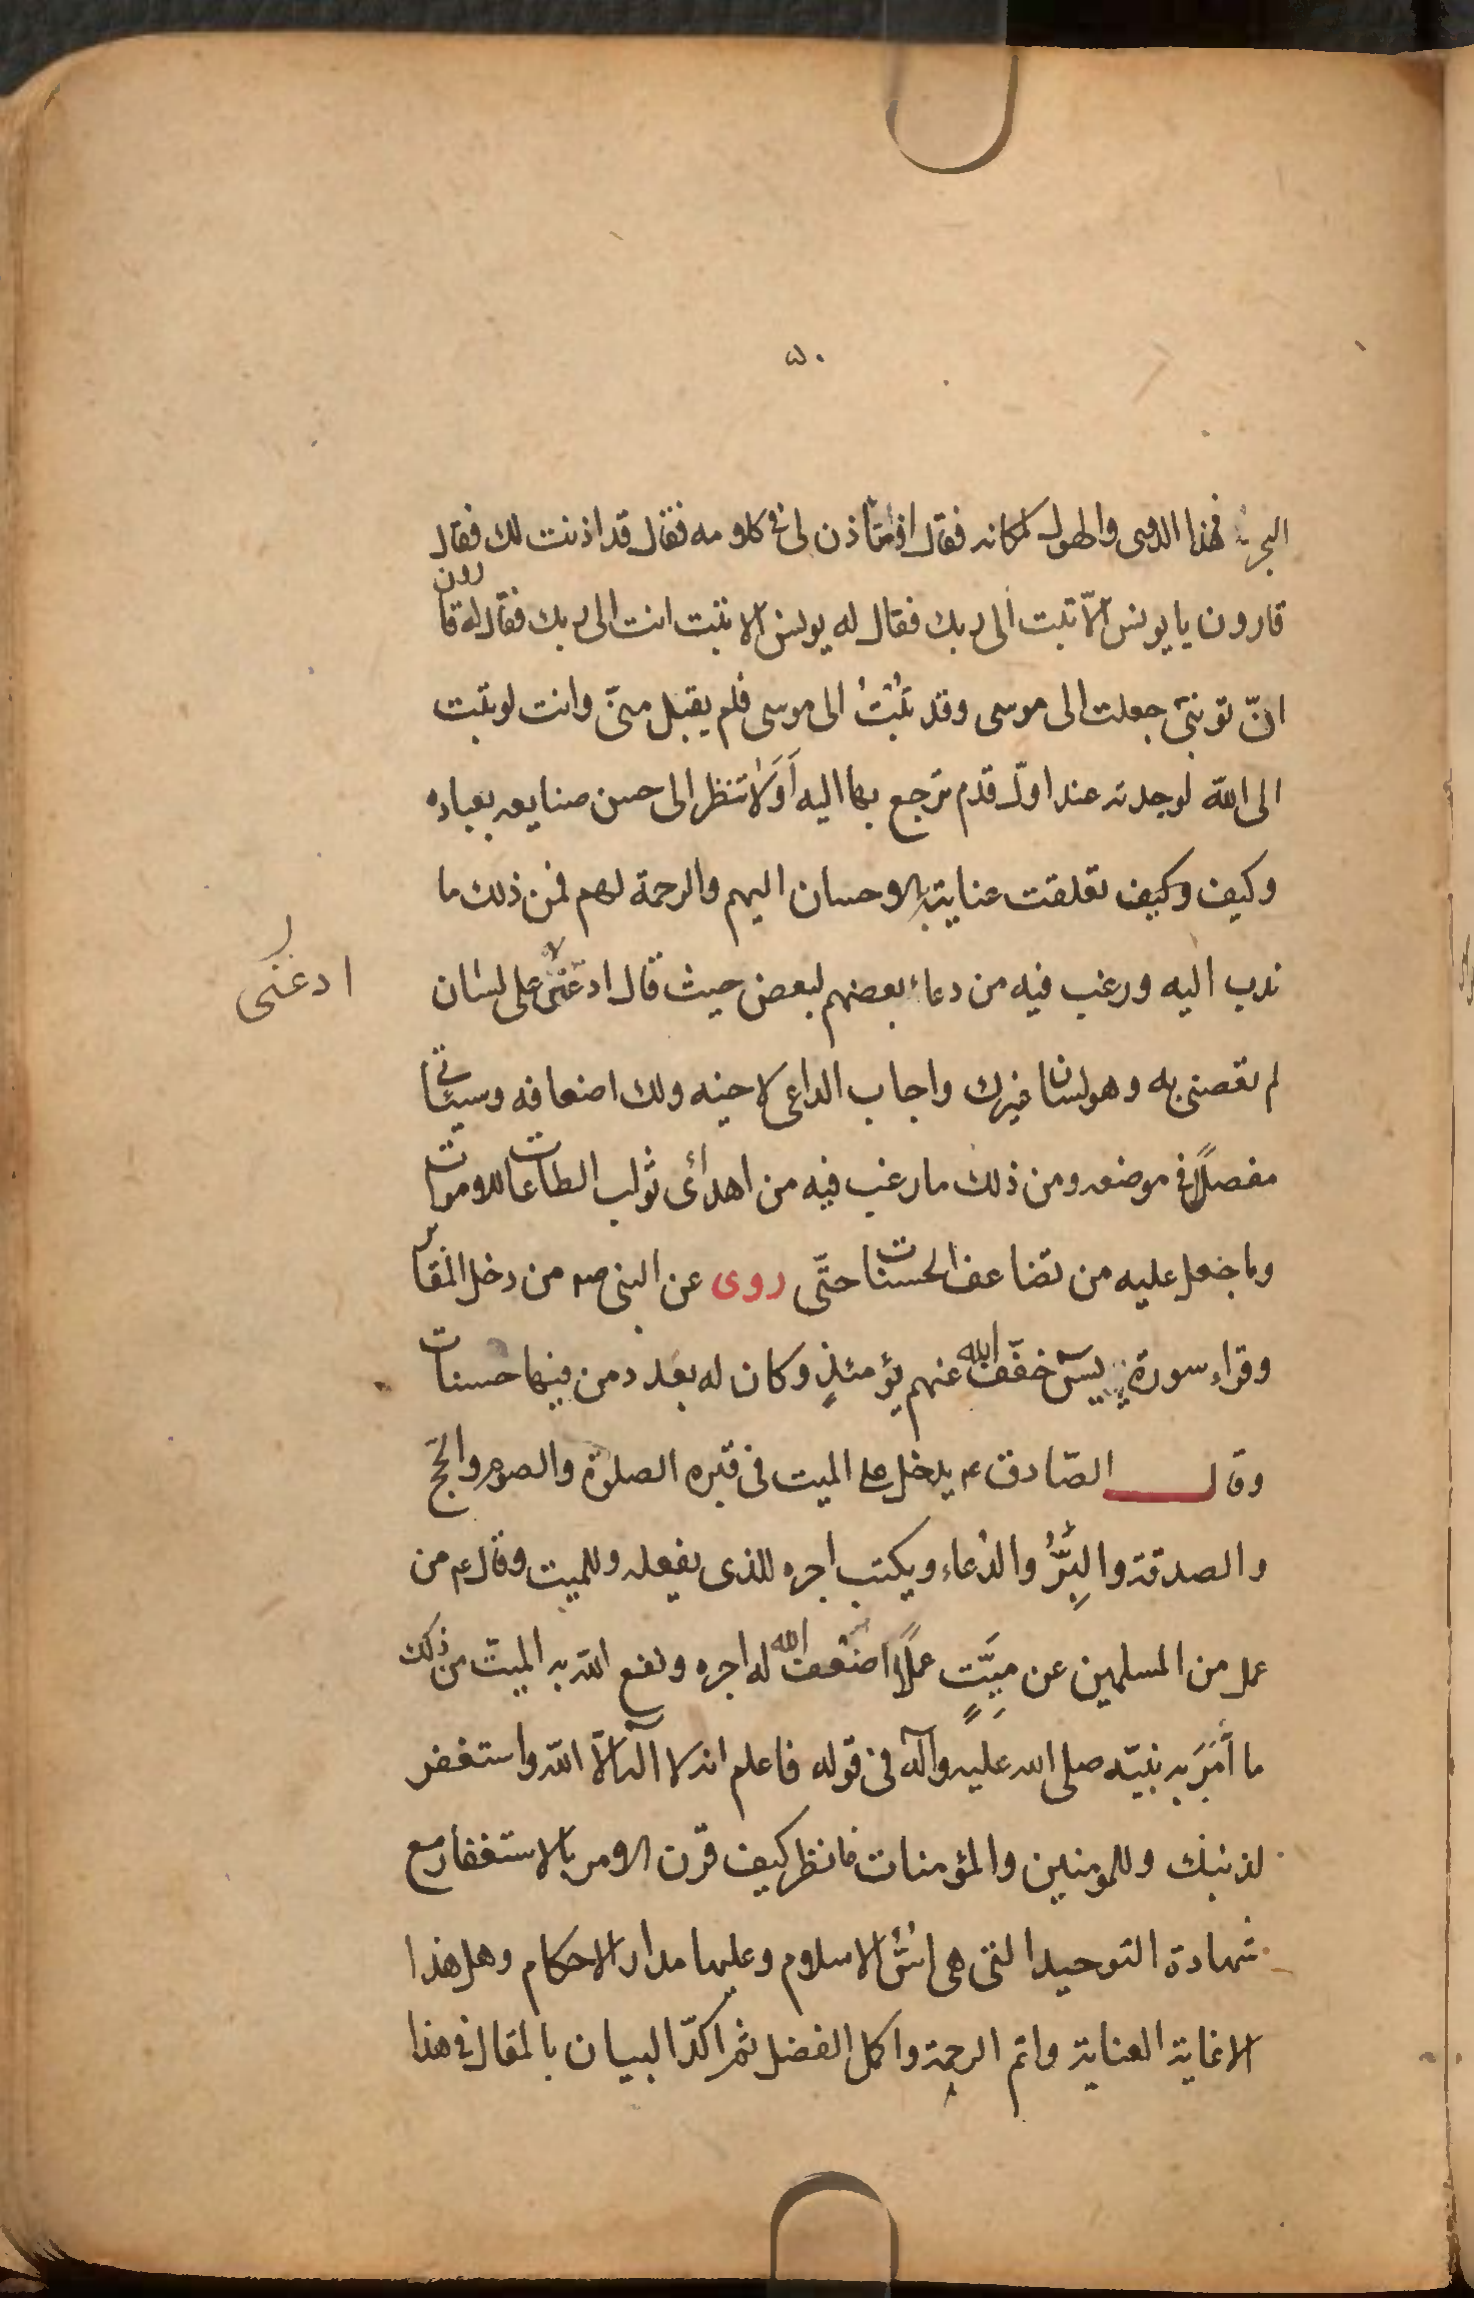 ۵۰
البحر فهذا الدوى والهول لمكانه فقال افتأذن لى فى كلامه فقال قد اذنت لك فقال
قارون يا يونس الّا تبت الى ربك فقال له يونس الا تبت انت الى ربك فقال له قارون
انّ توبتى جعلت الى موسى وقد تُبْتُ الى موسى فلم يقبل منّى وانت لو تبت
الى الله لوجدته عند اوّل قدم ترجع بها اليه أَوَلا تنظر الى حسن صنايعه بعباده
وكيف وكيف تعلقت عنايته بالاحسان اليهم والرحمة لهم فمن ذلك ما
ندب اليه ورغب فيه من دعاء بعضهم لبعض حيث قال ادعنى على لسان
ادعنى
لم تعصنى به وهو لسان غيرك واجاب الداعى لاخيه ولك اضعافه وسيأتى
مفصلاً فى موضعه ومن ذلك ما رغب فيه من اهدائى ثواب الطاعات للاموات
وما جعل عليه من تضاعف الحسنات حتّى روى عن النبى صه من دخل المقابر
وقراء سورة يس خفّف الله عنهم يؤمئذٍ وكان له بعدد من فيها حسنات
وقال الصّادق ع يدخل على الميت فى قبره الصلوة والصوم والحجّ
والصدقة والبِرُّ والدُعاء ويكتب اجره للذى يفعله وللميت وقال ع من
عمل من المسلمين عن ميَّتٍ عملاً اضعف الله له اجره ونفع الله به الميّت من ذلك
ما أَمَرَ به نبيّه صلى الله عليه وآله فى قوله فاعلم انه لا اله الّا الله واستغفر
لذنبك وللمومنين والمؤمنات فانظر كيف قرن الامر بالاستغفار مع
شهادة التوحيد التى هى اسُّ الاسلام وعليها مدار الاحكام وهل هذا
الا غاية العناية واتم الرحمة واكمل الفضل ثم اكدّ البيان بالمقال فى هذا